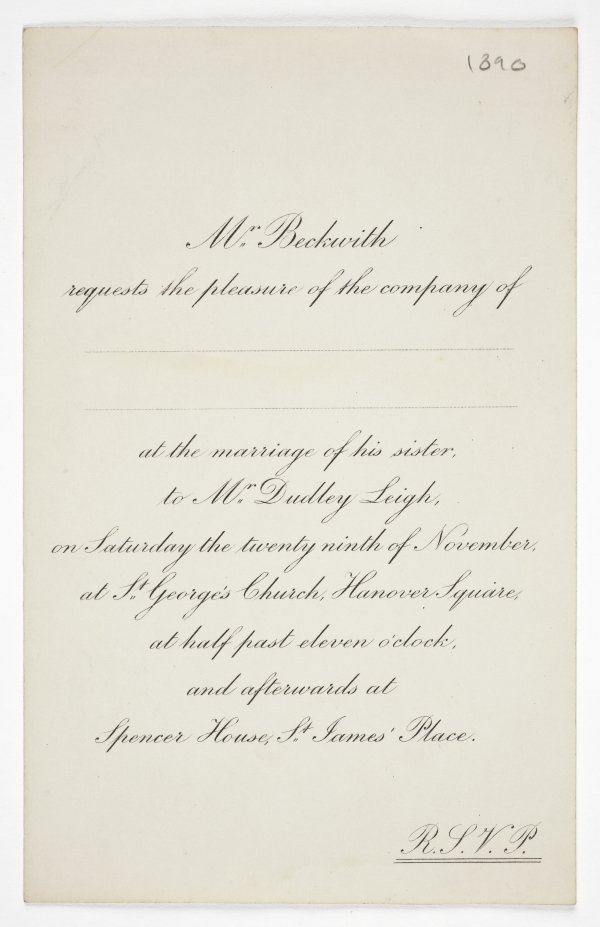 1890
Mr. Beckwith
requests the pleasure of the company of
at the marriage of his sister,
to Mr. Dudley Leigh,
on Saturday the twenty ninth of November,
at St. George's Church, Hanover Square,
at half past eleven o'clock,
and afterwards at
Spencer House, St. James' Place.
R.S.V.P.